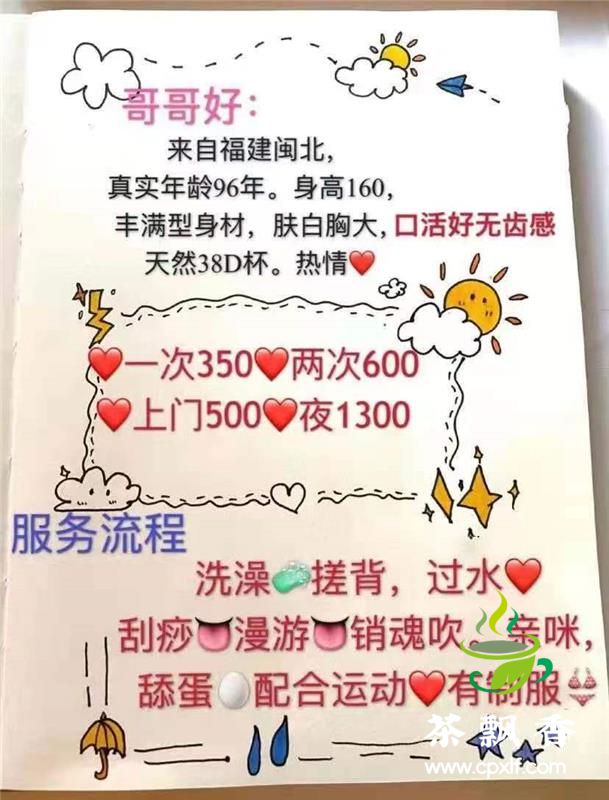 哥哥好：
来自福建闽北，
真实年龄96年。身高160，
丰满型身材，肤白胸大，口活好无齿感
天然38D杯。热情❤️
❤️一次350❤️两次600
❤️上门500❤️夜1300
服务流程
洗澡🧼搓背，过水❤️
刮痧👅漫游👅销魂吹。亲咪，
舔蛋🥚配合运动❤️有制服👙
茶飘香
www.cpxif.com